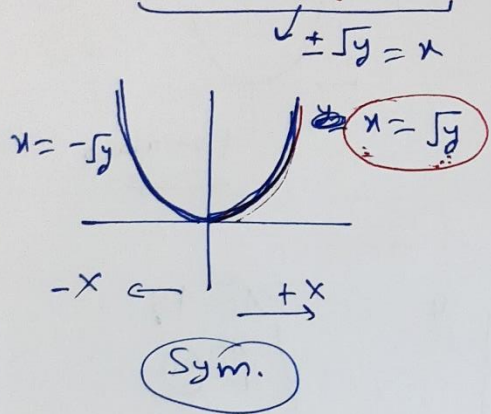 ± √y = x
x = -√y
x = √y
-x ← +x →
Sym.